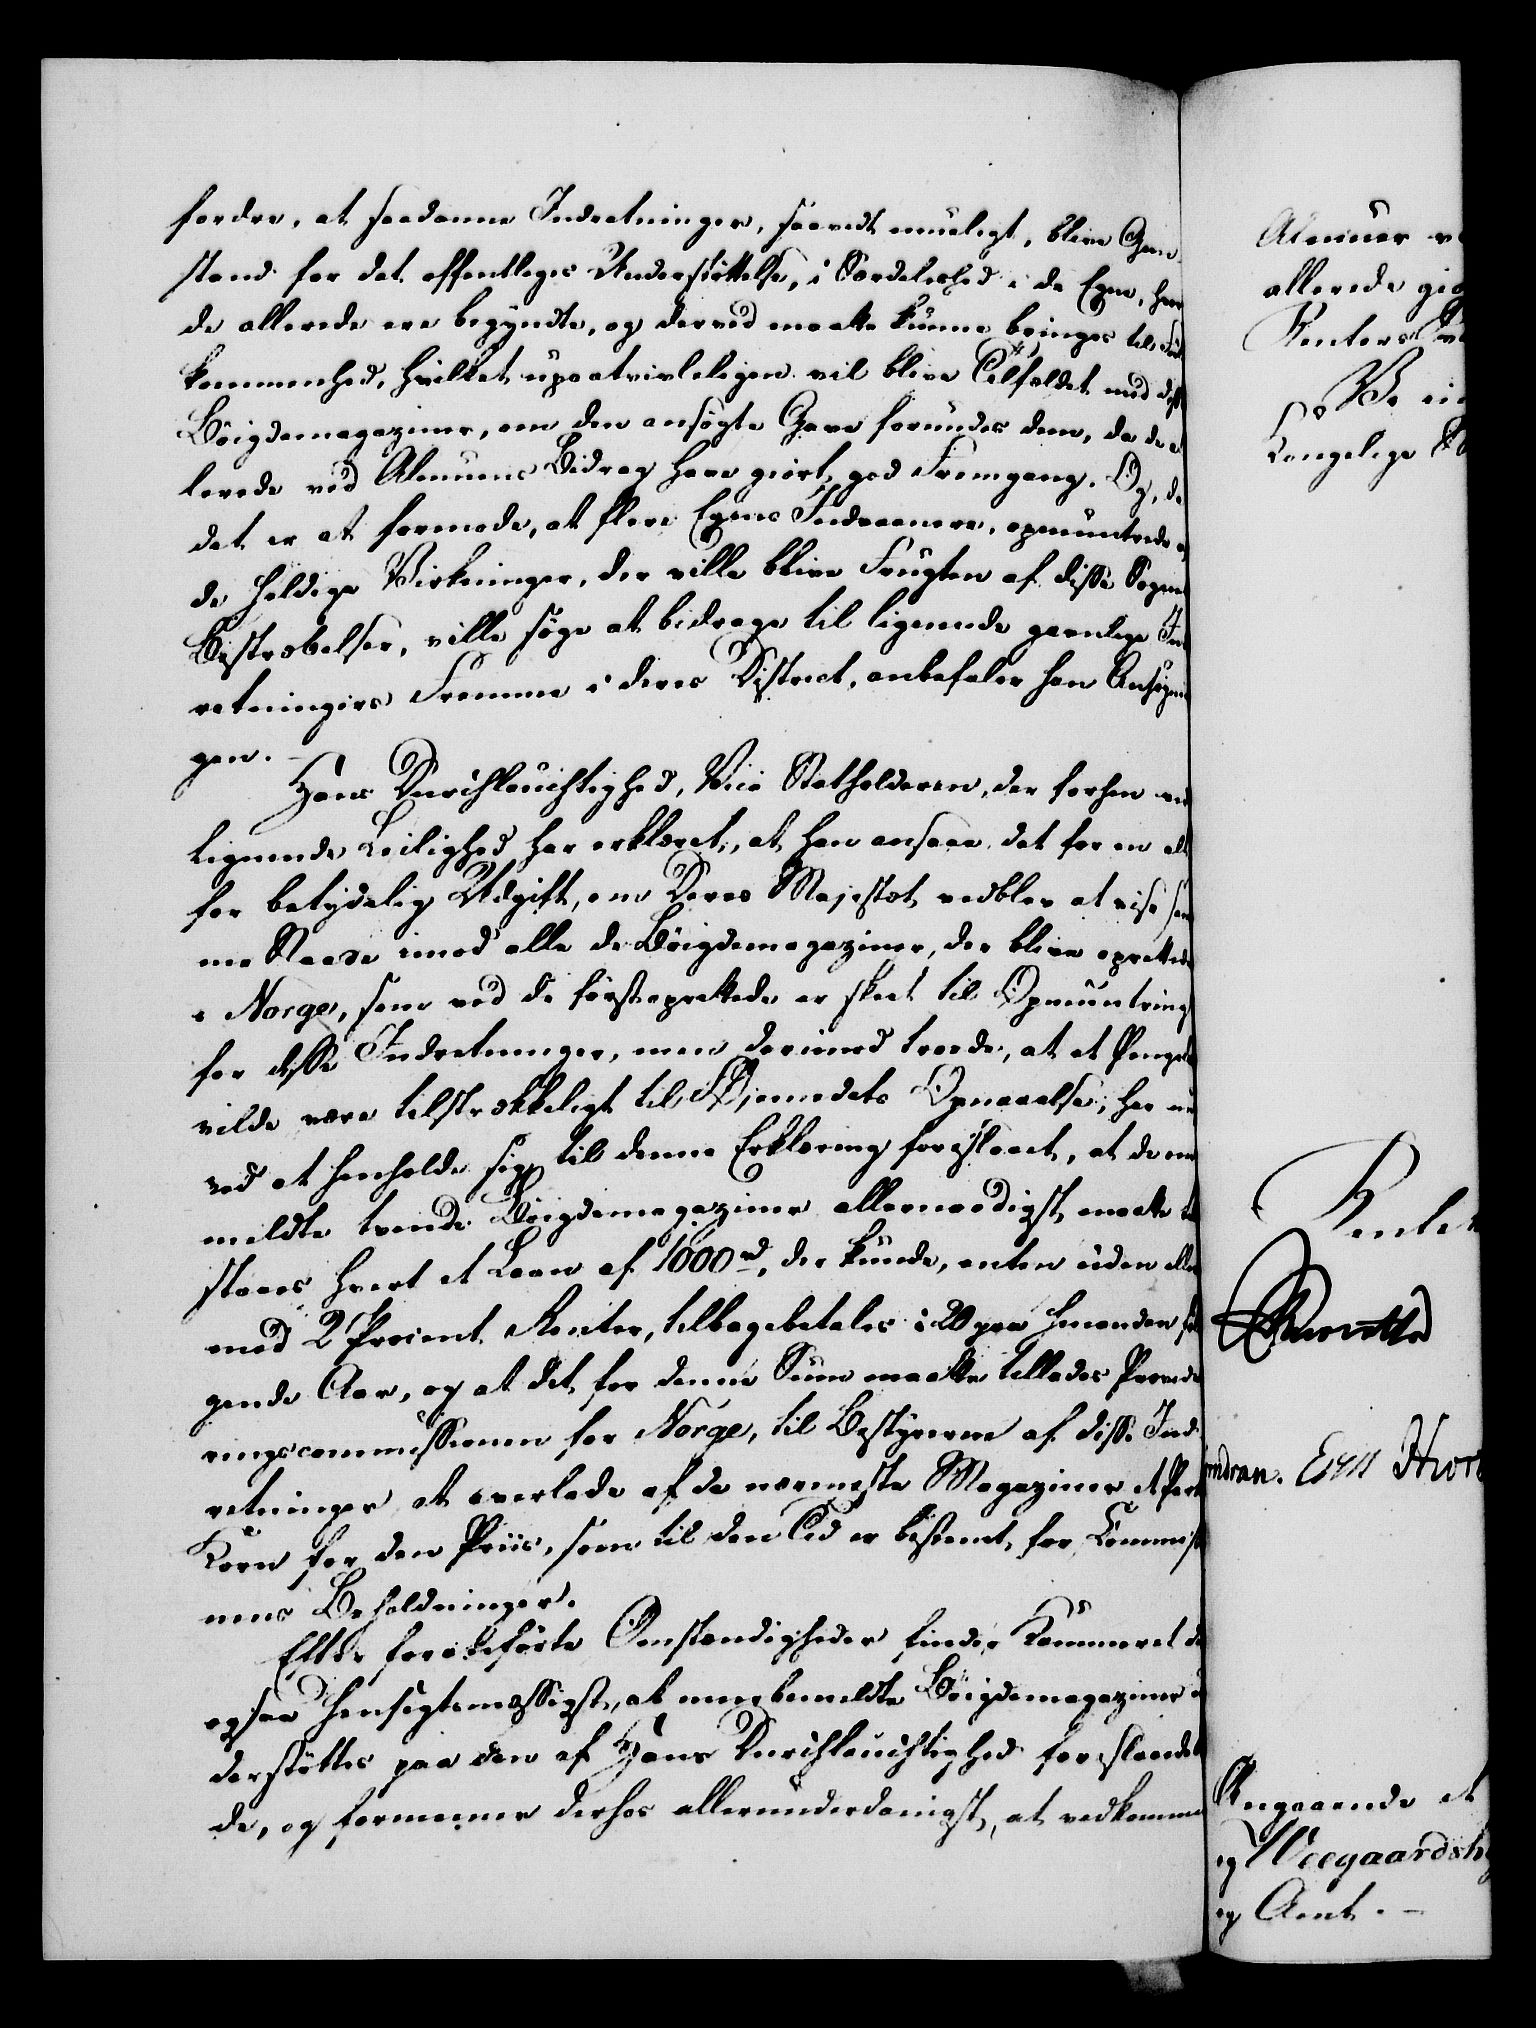 fordre, at saadanne Indretninger, saavidt mueligt, blive Gien-
stand for det offentliges Understøttelse, i Særdeleshed i de Egne, hvor
de allerede ere begyndte, og derved maatte kunne bringes til Fuld
kommenhed, hvilket upaatvivleligen vil blive Tilfældet med disse
Bøigdemagaziner, om den ansøgte Gave forundes dem, da de al
lerede ved Almuens Bidrag have giort god Fremgang. Og, da
det er at formode, at flere Egnes Indvaanere, opmuntrede af
de heldige Virkninger, der ville blive Frugten af disse Sognes
Bestræbelser, ville søge at bidrage til lignende gavnlige Ind
retningers Fremme i deres District, anbefaler han Ansøgnin
gen. —
Hans Durchlauchtighed, Vice Statholderen, der forhen ved
lignende Leilighed har erklæret, at han ansaae det for en alt
for betydelig Udgift, om Deres Majestæt vedblev at vise sam
me Naade imod alle de Bøigdemagaziner, der blive oprettede
i Norge, som ved de førstoprettede er skeet til Opmuntring
for disse Indretninger, men derimod troede, at et Pengelaan
vilde være tilstrækkeligt til Øiemedets Opnaaelse, har nu
ved at henholde sig til denne Erklæring foreslaaet, at de om
meldte trende Bøigdemagaziner allernaadigst maatte til
staaes hvert et Laan af 1000 rd, der kunde, enten uden eller
med 2 Procent Renter, tilbagebetales i 20 paa hinanden føl
gende Aar, og at det for denne Sum maatte tillades Provide
ringscommissionen for Norge, til Bestyrerne af disse Ind
retninger at overlade af de nærmeste Magaziner et Partie
Korn for den Priis, som til den Tid er bestemt for Commissio
nens Beholdninger.
Efter foranførte Omstændigheder finder Kammeret det
ogsaa hensigtsmæssigst, at ommeldte Bøigdemagaziner un
derstøttes paa den af Hans Durchlauchtighed foreslaaede Maa
de, og formener derhos allerunderdanigst, at vedkomme
Almuer
allerede
Renters
Vi
Kongelige
Rente
Angaaende et
og Veegaardsh
og Amt. —